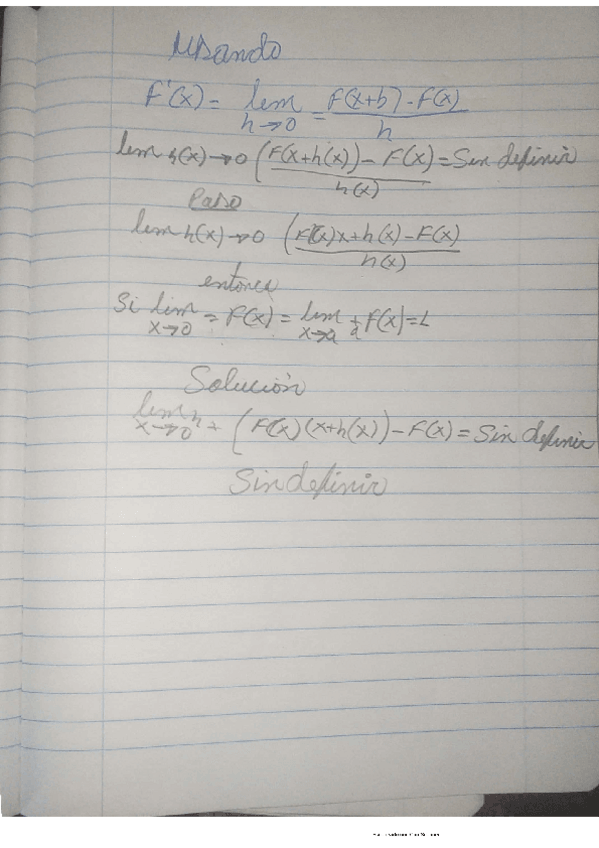 Usando
F'(x) = lem h→0 = F(x+h) - F(x) / h
lem h(x)→0 (F(x+h(x)) - F(x) / h(x) = Sin definir
Paso
lem h(x)→0 (F(x)x+h(x) - F(x) / h(x)
entonces
Si lim x→0 = F(x) = lem x→a ± a F(x) = L
Solución
lem x→0 h + (F(x)(x+h(x)) - F(x) = Sin definir
Sin definir